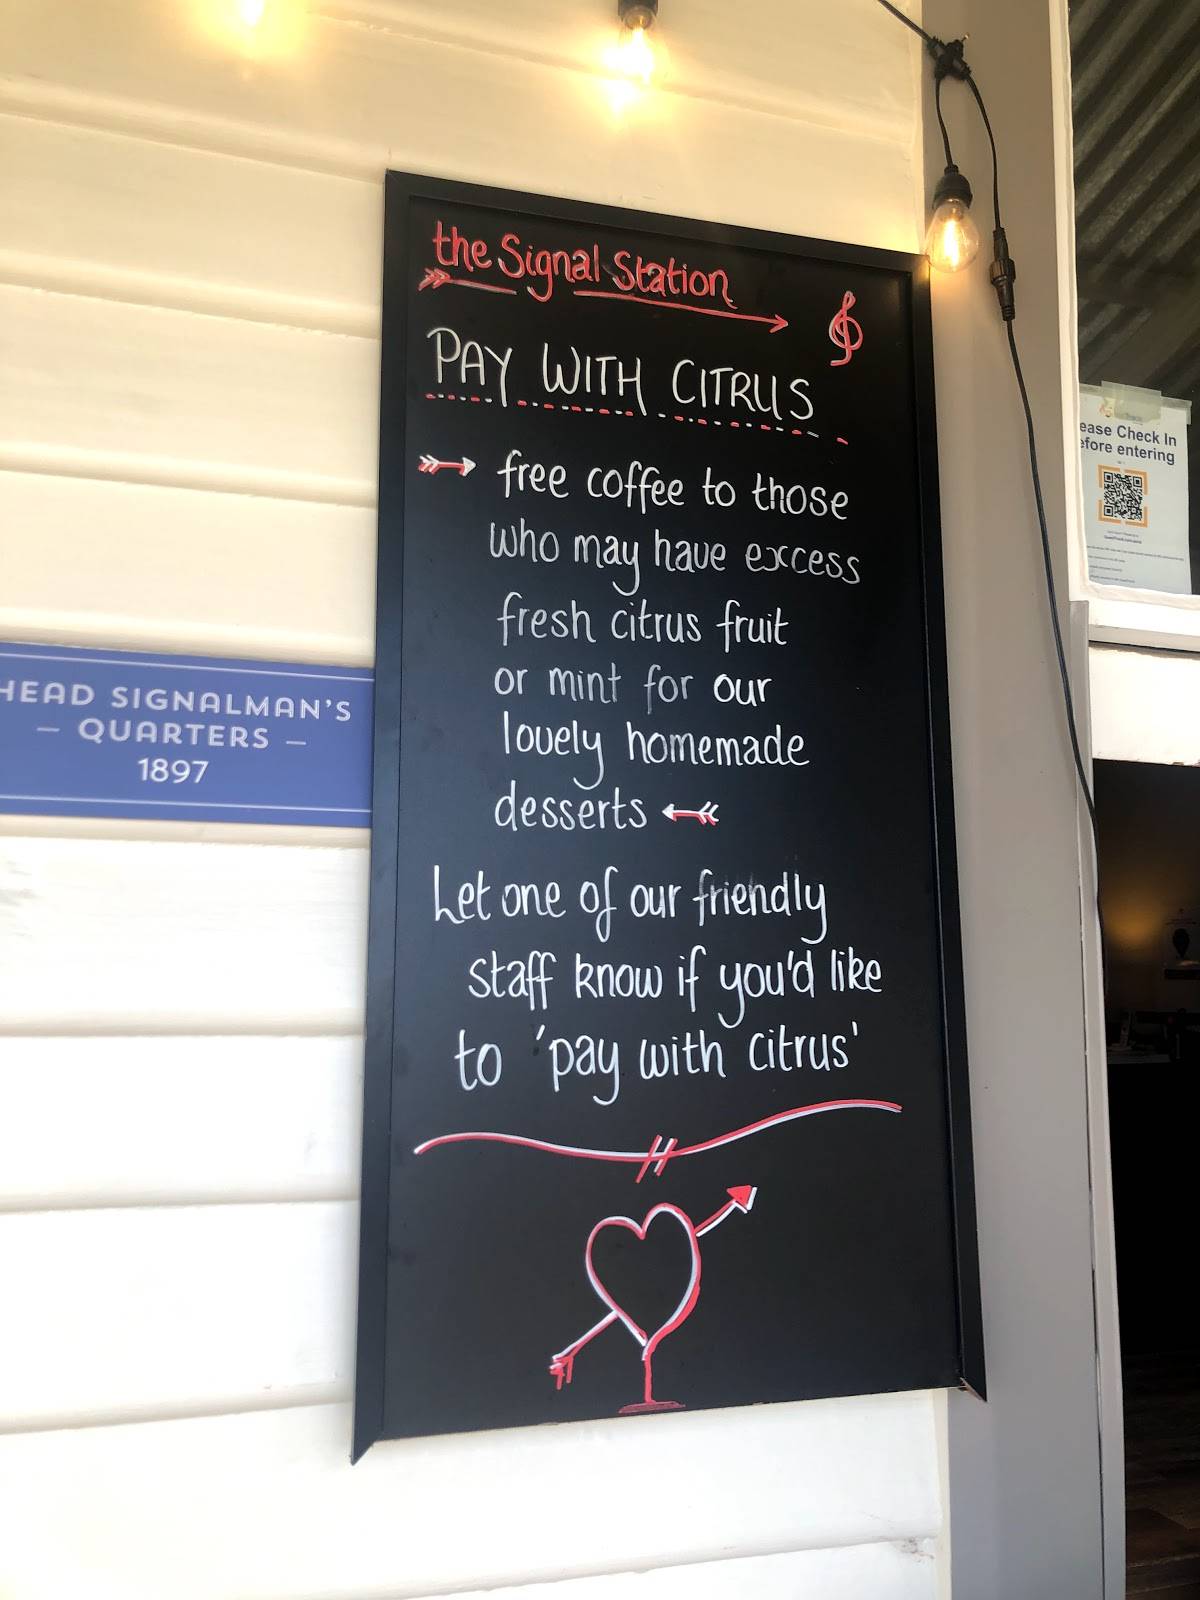 the Signal Station
PAY WITH CITRUS
free coffee to those
who may have excess
fresh citrus fruit
or mint for our
lovely homemade
desserts
Let one of our friendly
staff know if you'd like
to 'pay with citrus'
HEAD SIGNALMAN'S
— QUARTERS —
1897
ease Check In
efore entering